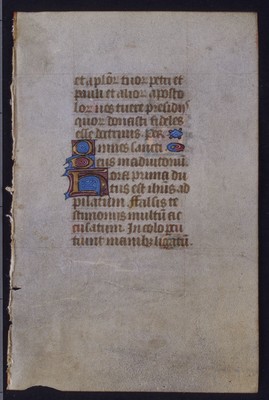 et aplōr tuor petri et
pauli et alior aposto
lor nos tuere presidijs
quor donasti fideles
esse doctrinis. Per.
Omnes sancti
Deus in adiutorium
Hora prima du
ctus est ihus ad
pilatum Falsis te
stimoniis multū ac
cusatum. In colo
tunt manib ligatū.